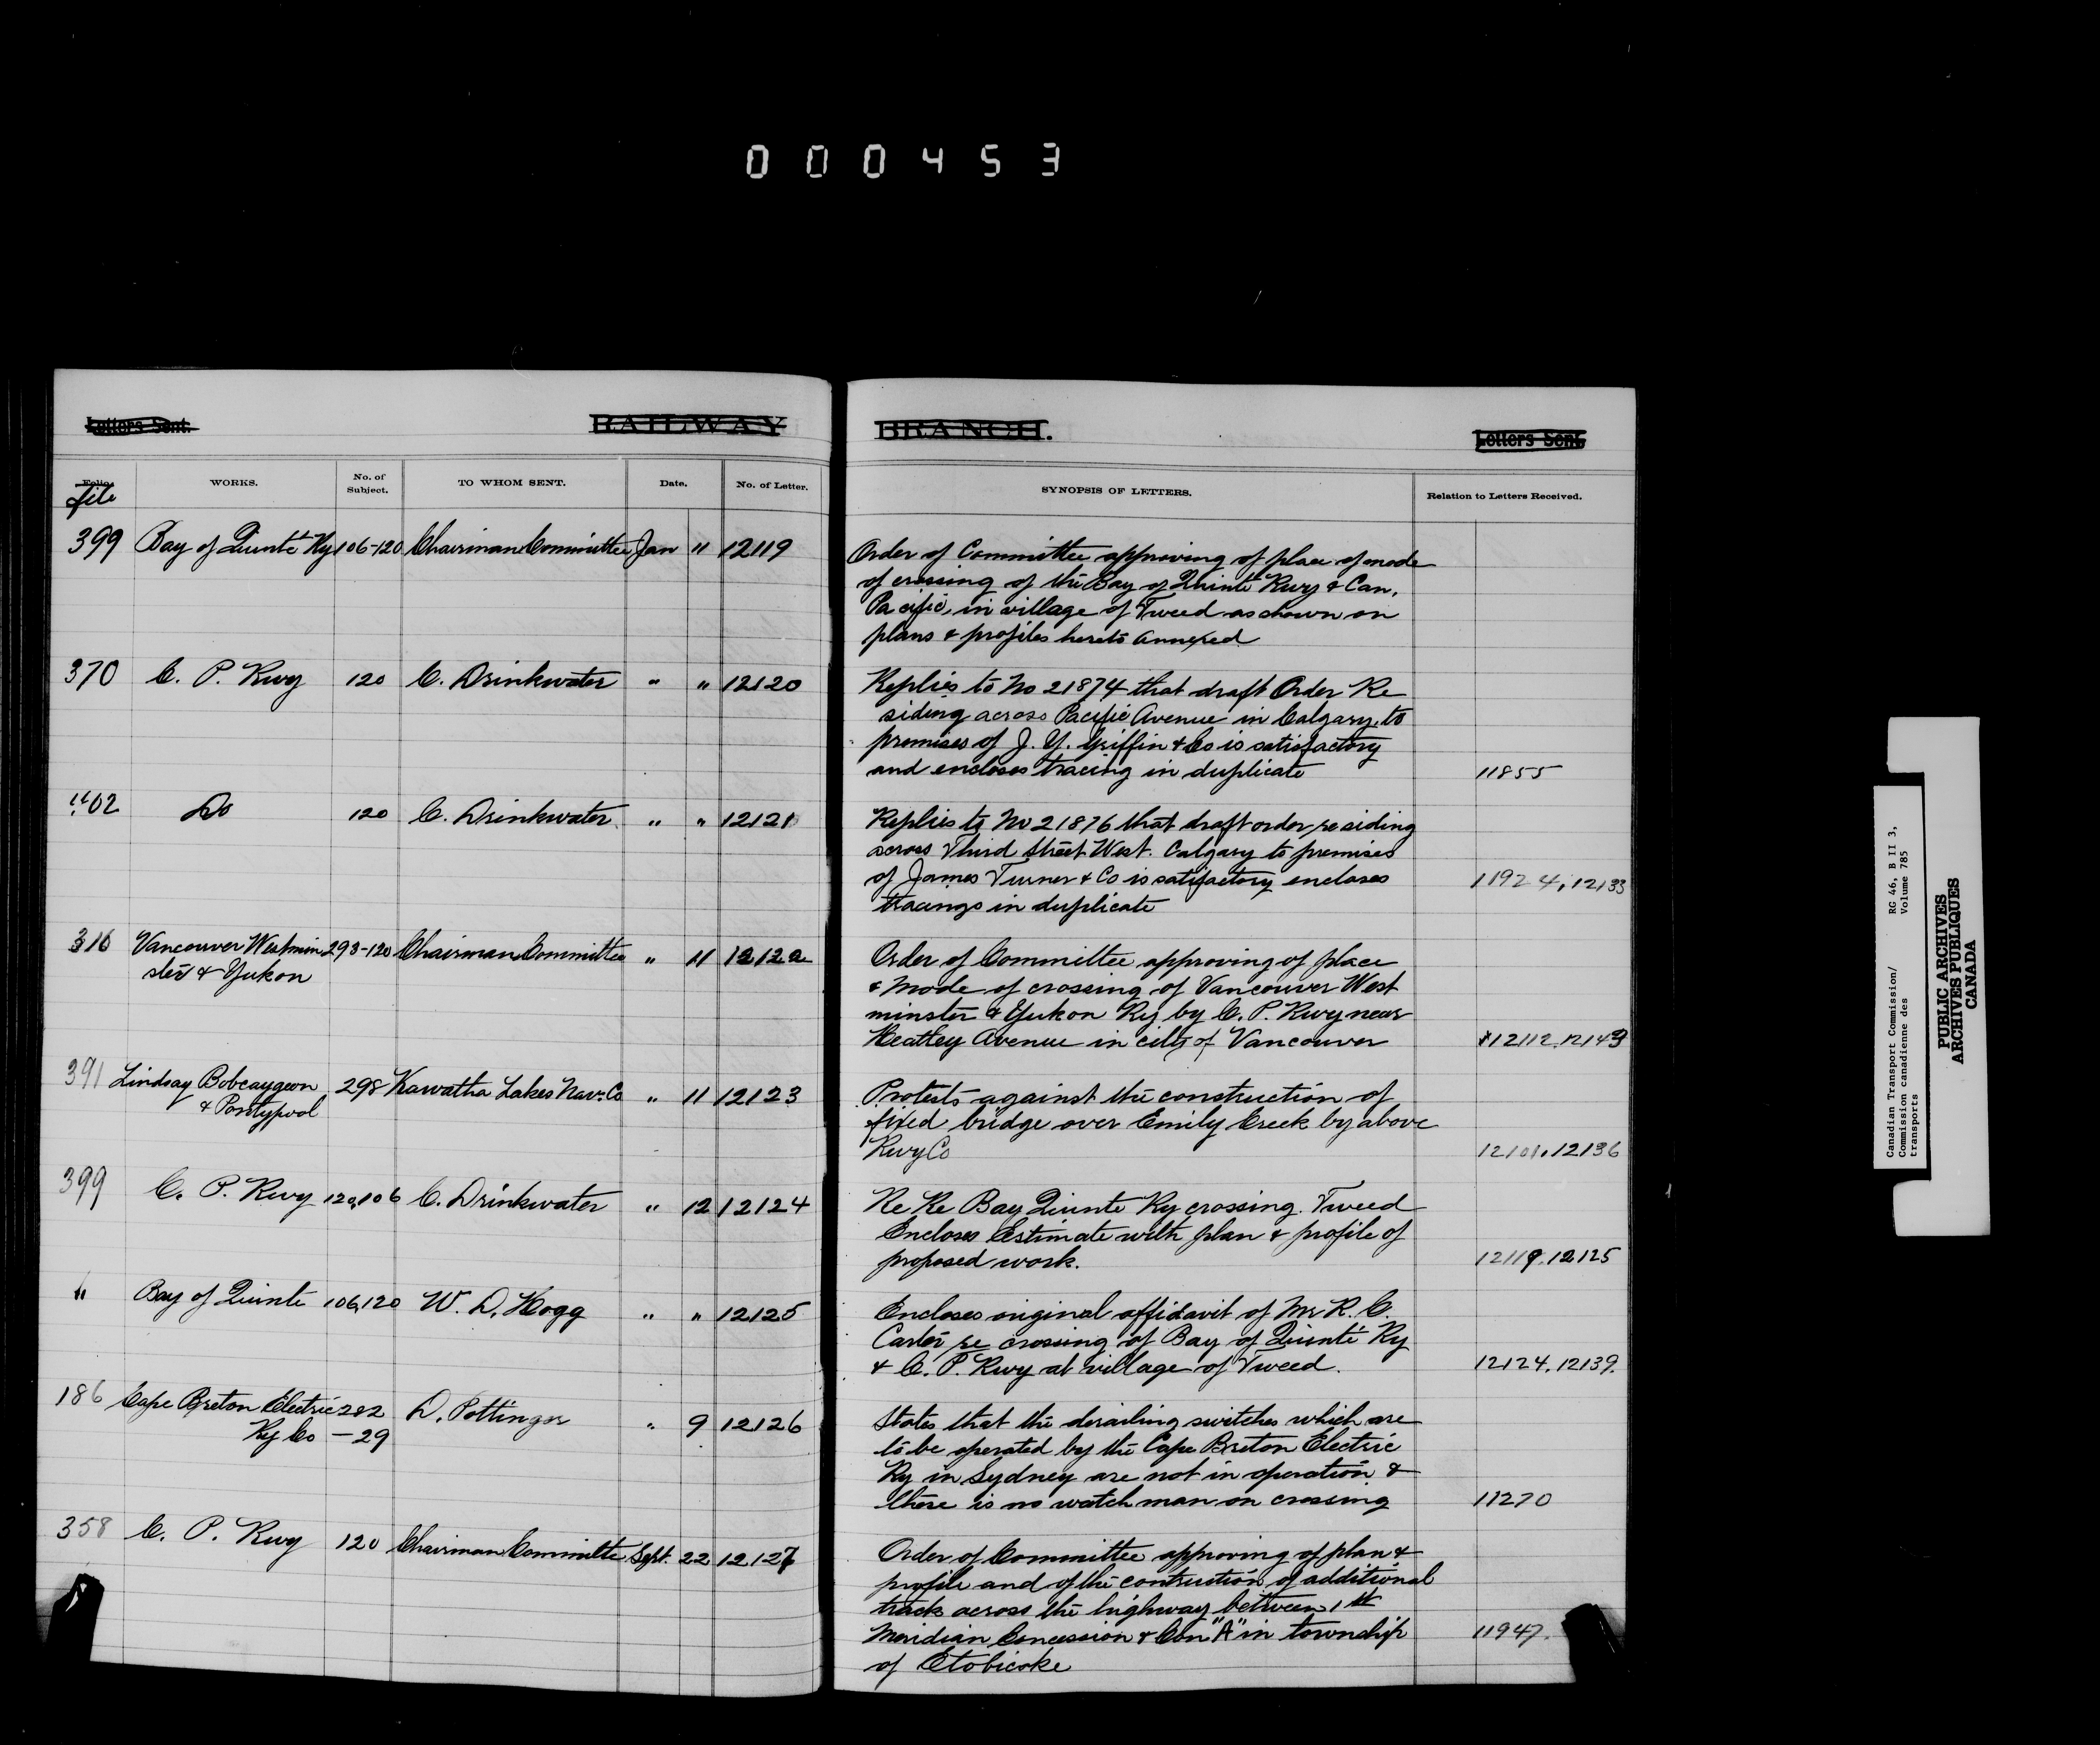 000453
Letters Sent.
RAILWAY
BRANCH.
Letters Sent.
Folio
file
WORKS.
No. of Subject.
TO WHOM SENT.
Date.
No. of Letter.
SYNOPSIS OF LETTERS.
Relation to Letters Received.
399 Bay of Quinté Ry 106-120 Chairman Committee Jan " 12119
Order of Committee approving of place of mode
of crossing of the Bay of Quinté Rwy & Can.
Pacific, in village of Tweed as shown on
plans & profiles hereto annexed
370 C. P. Rwy 120 C. Drinkwater " " 12120
Replies to No 21874 that draft Order Re
siding across Pacific Avenue in Calgary, to
premises of J. Y. Griffin & Co is satisfactory
and encloses tracing in duplicate 11855
402 Do 120 C. Drinkwater " " 12121
Replies to No 21876 that draft order re siding
across Third Street West. Calgary to premises
of James Turner & Co is satisfactory encloses 11924, 12133
tracings in duplicate
316 Vancouver Westmin 298-120 Chairman Committee " 11 12122
ster & Yukon
Order of Committee approving of place
& Mode of crossing of Vancouver West
minster & Yukon Ry by C. P. Rwy near
Heatley Avenue in city of Vancouver 12112, 12149
391 Lindsay Bobcaygeon 298 Kawatha Lakes Nav. Co " 11 12123
& Pontypool
Protests against the construction of
fixed bridge over Emily Creek by above
Rwy Co 12101, 12136
399 C. P. Rwy 120,106 C. Drinkwater " 12 12124
Re Re Bay Quinte Ry crossing. Tweed
Encloses Estimate with plan & profile of
proposed work. 12119, 12125
" Bay of Quinte 106,120 W. D. Hogg " " 12125
Encloses original affidavit of Mr R. C.
Carter re crossing of Bay of Quinté Ry
& C. P. Rwy at village of Tweed. 12124, 12139.
186 Cape Breton Electric 282 D. Pottinger " 9 12126
Ry Co - 29
States that the derailing switches which are
to be operated by the Cape Breton Electric
Ry in Sydney are not in operation &
there is no watch man on crossing 11270
358 C. P. Rwy 120 Chairman Committe Sept. 22 12127
Order of Committee approving of plan &
profile and of the contruction of additional
track across the highway between 1st
Meridian Concession & Con "A" in township 11947.
of Etobicoke
Canadian Transport Commission/ RG 46, B II 3,
Commission canadienne des Volume 785
transports
PUBLIC ARCHIVES
ARCHIVES PUBLIQUES
CANADA